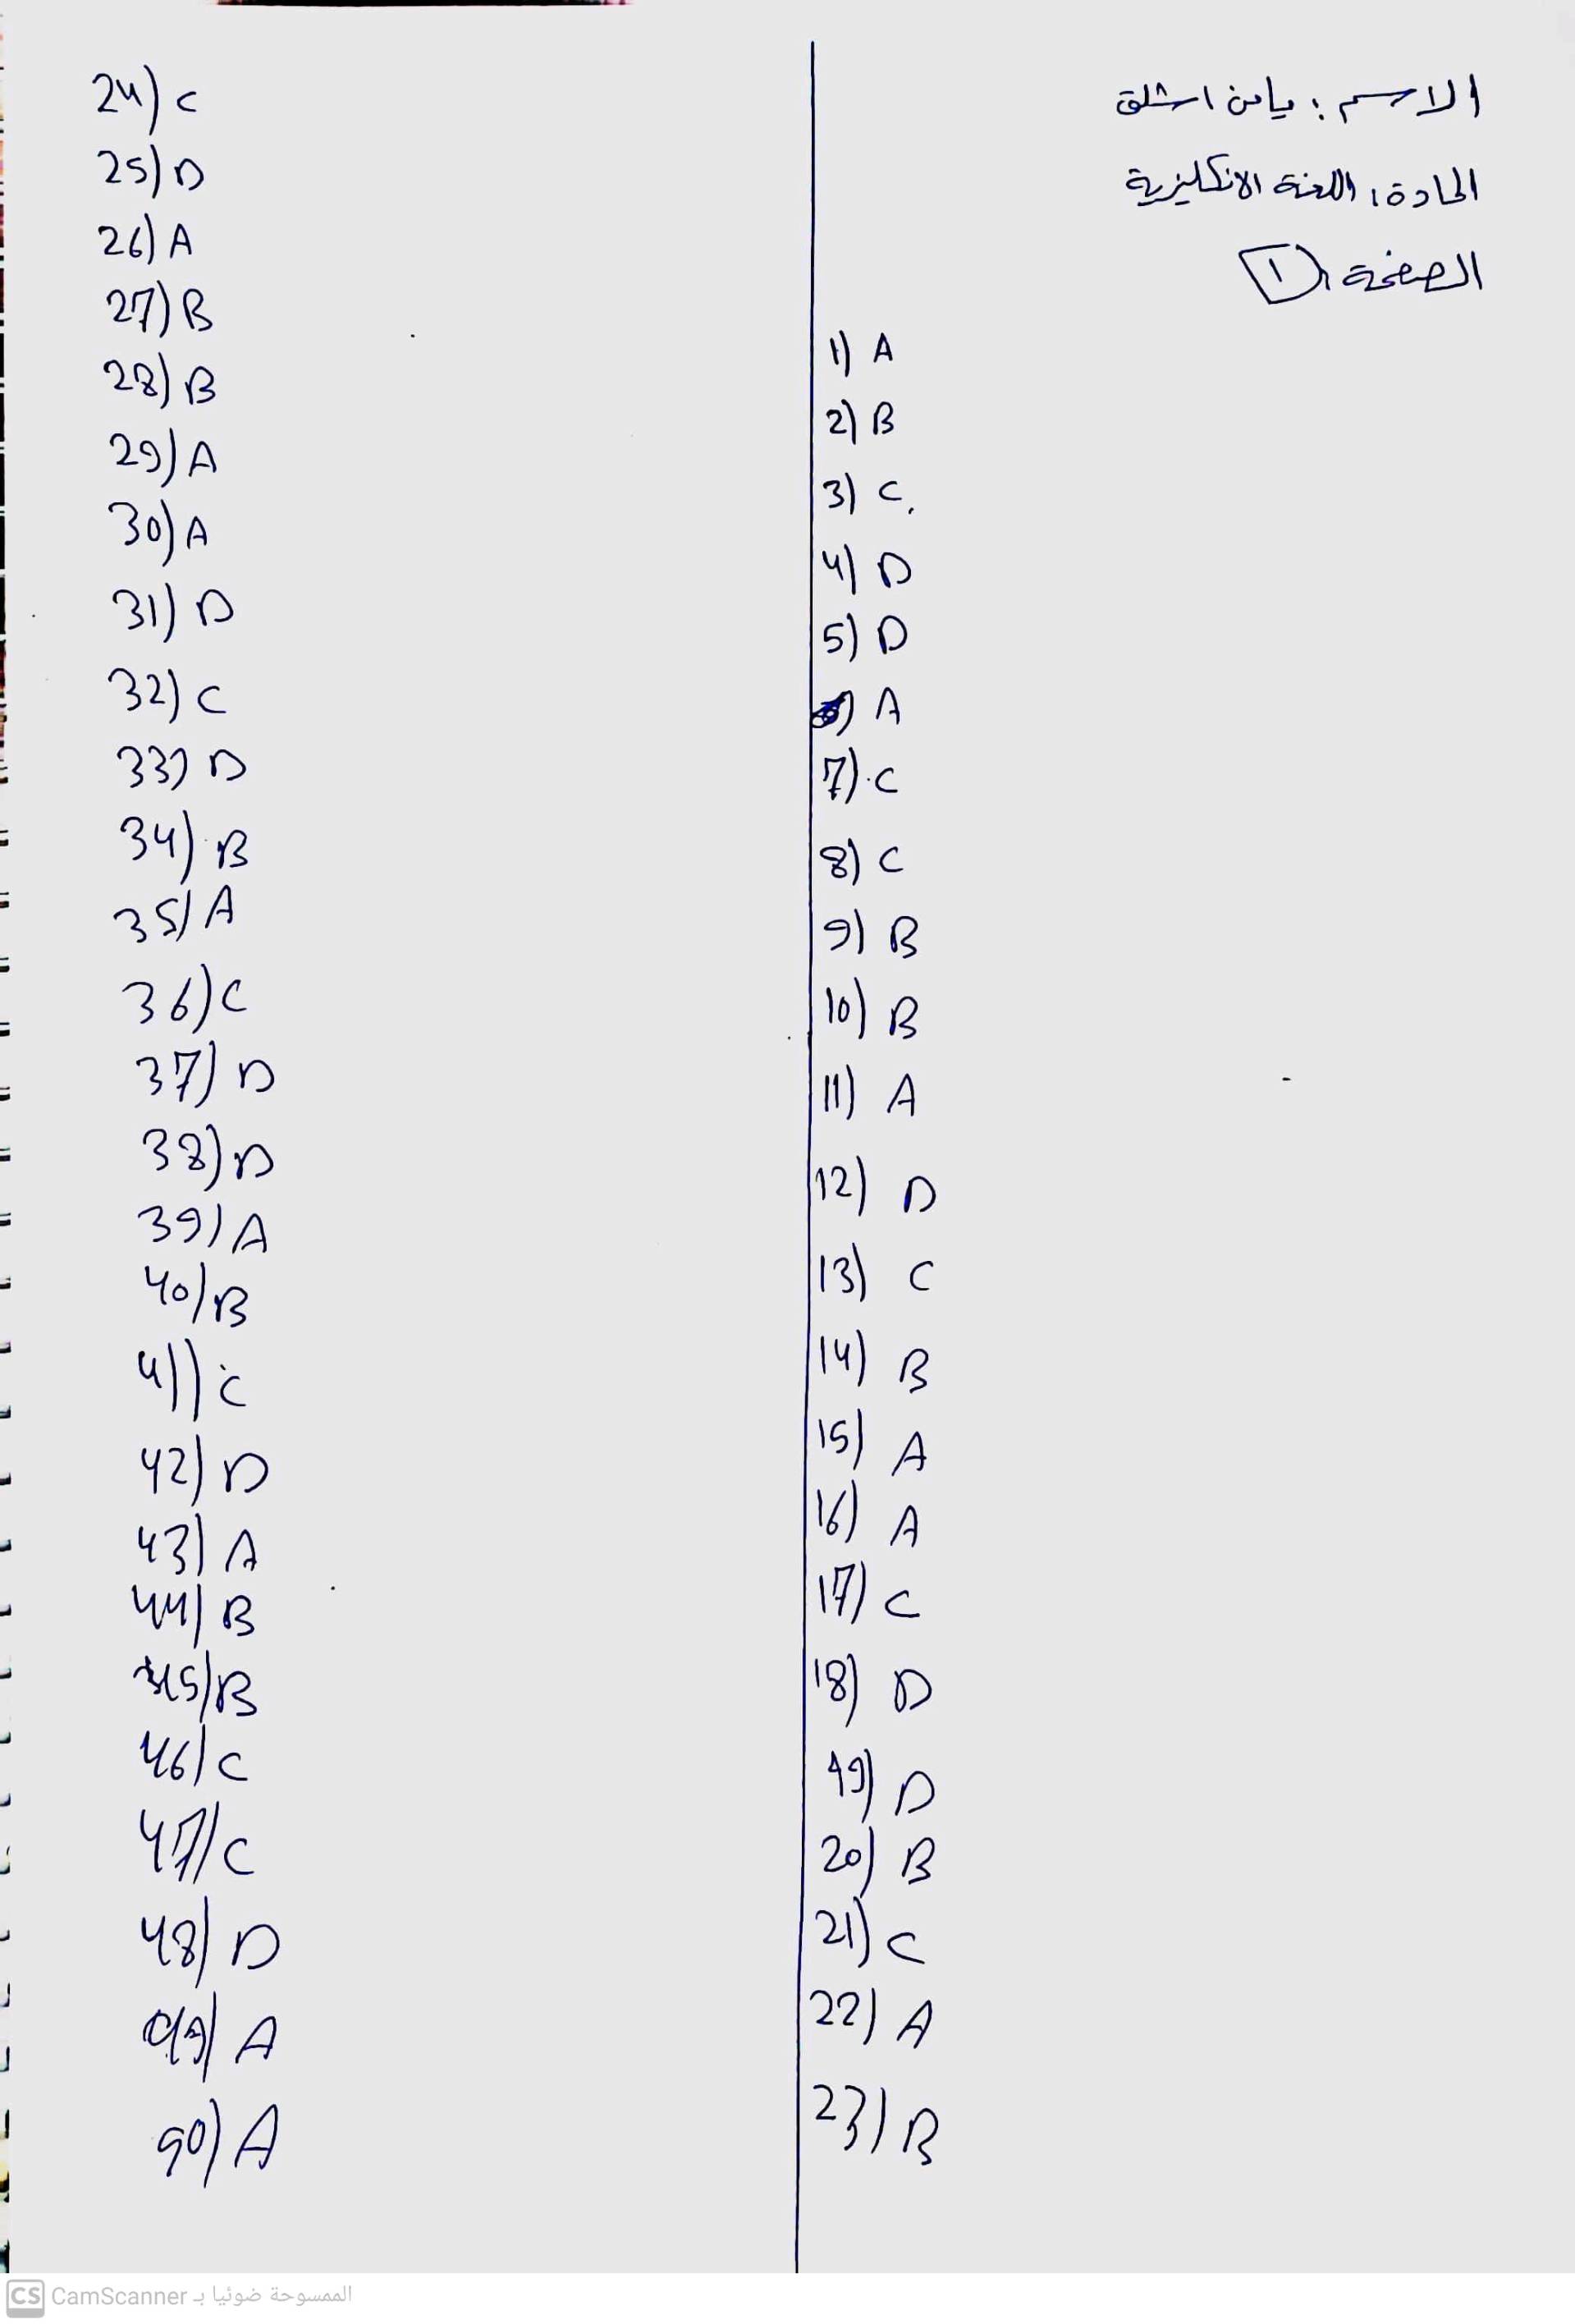 الاسم : يامن اشلق
المادة : اللغة الانكليزية
الصفحة : ١
1) A
2) B
3) C
4) D
5) D
6) A
7) C
8) C
9) B
10) B
11) A
12) D
13) C
14) B
15) A
16) A
17) C
18) D
19) D
20) B
21) C
22) A
23) B
24) C
25) D
26) A
27) B
28) B
29) A
30) A
31) D
32) C
33) D
34) B
35) A
36) C
37) D
38) D
39) A
40) B
41) C
42) D
43) A
44) B
45) B
46) C
47) C
48) D
49) A
50) A
CS CamScanner الممسوحة ضوئيا بـ